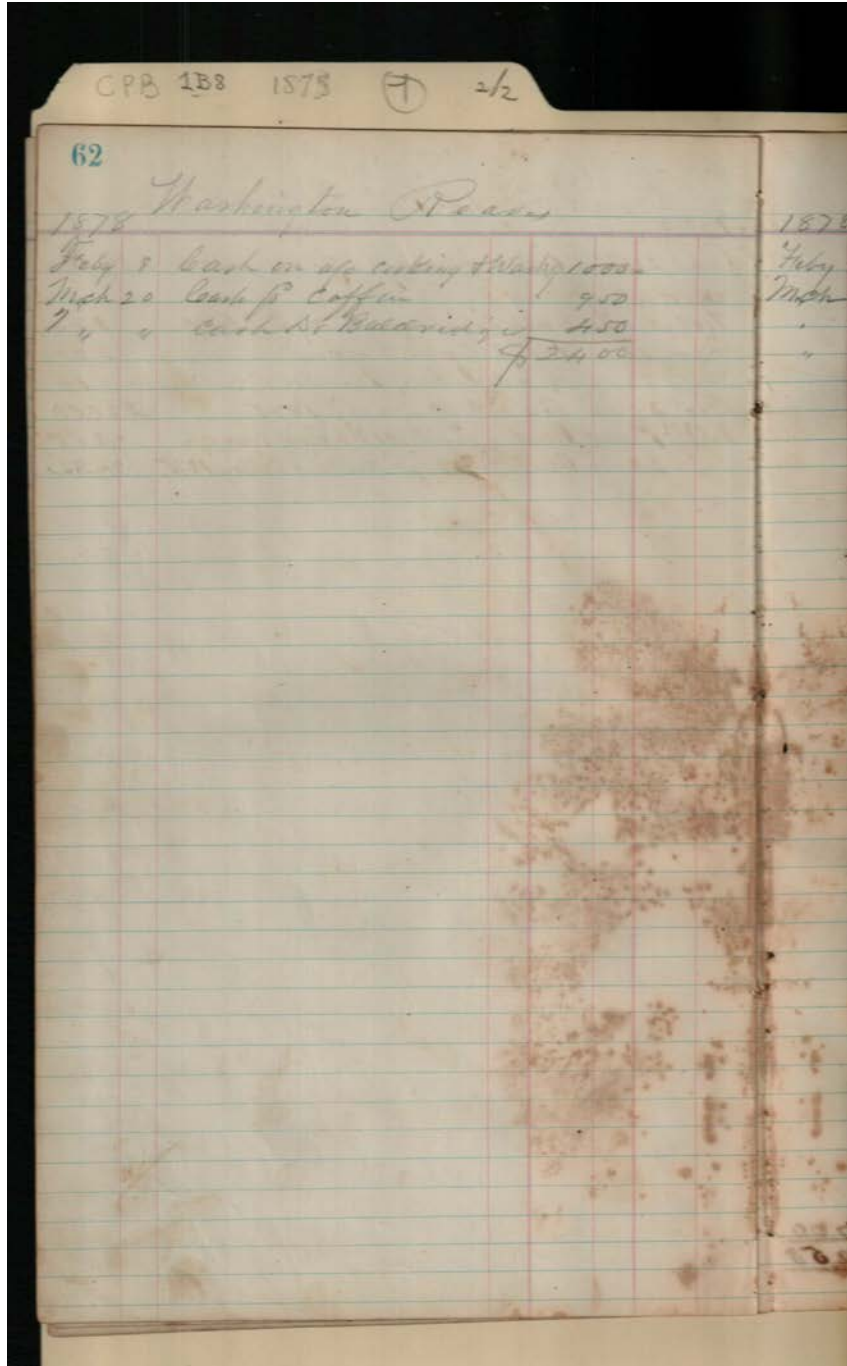 CPB 1B8 1878 7 2/2
62
Washington Reaves
1878
Feby 8 Cash on a/c cutting & Washg 1000
Mch 20 Cash for Coffin 950
" " Cash Dr Baldridge 450
$ 2400
1878
Feby
Mch
"